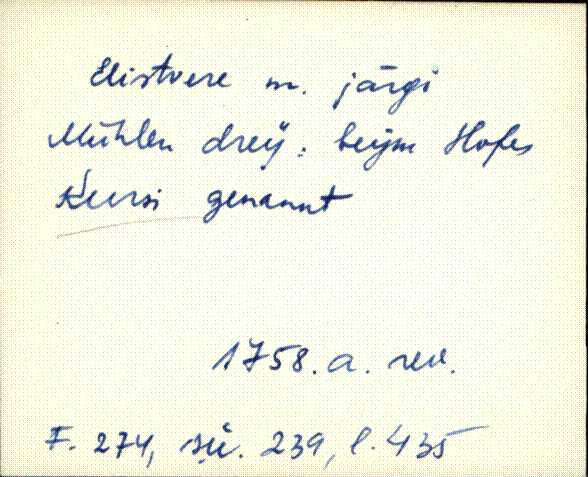 Elistvere m. järgi
Mühlen dreÿ: beÿm Hofes
Kursi genannt
1758. a. rev.
F. 274, sü. 239, l. 435